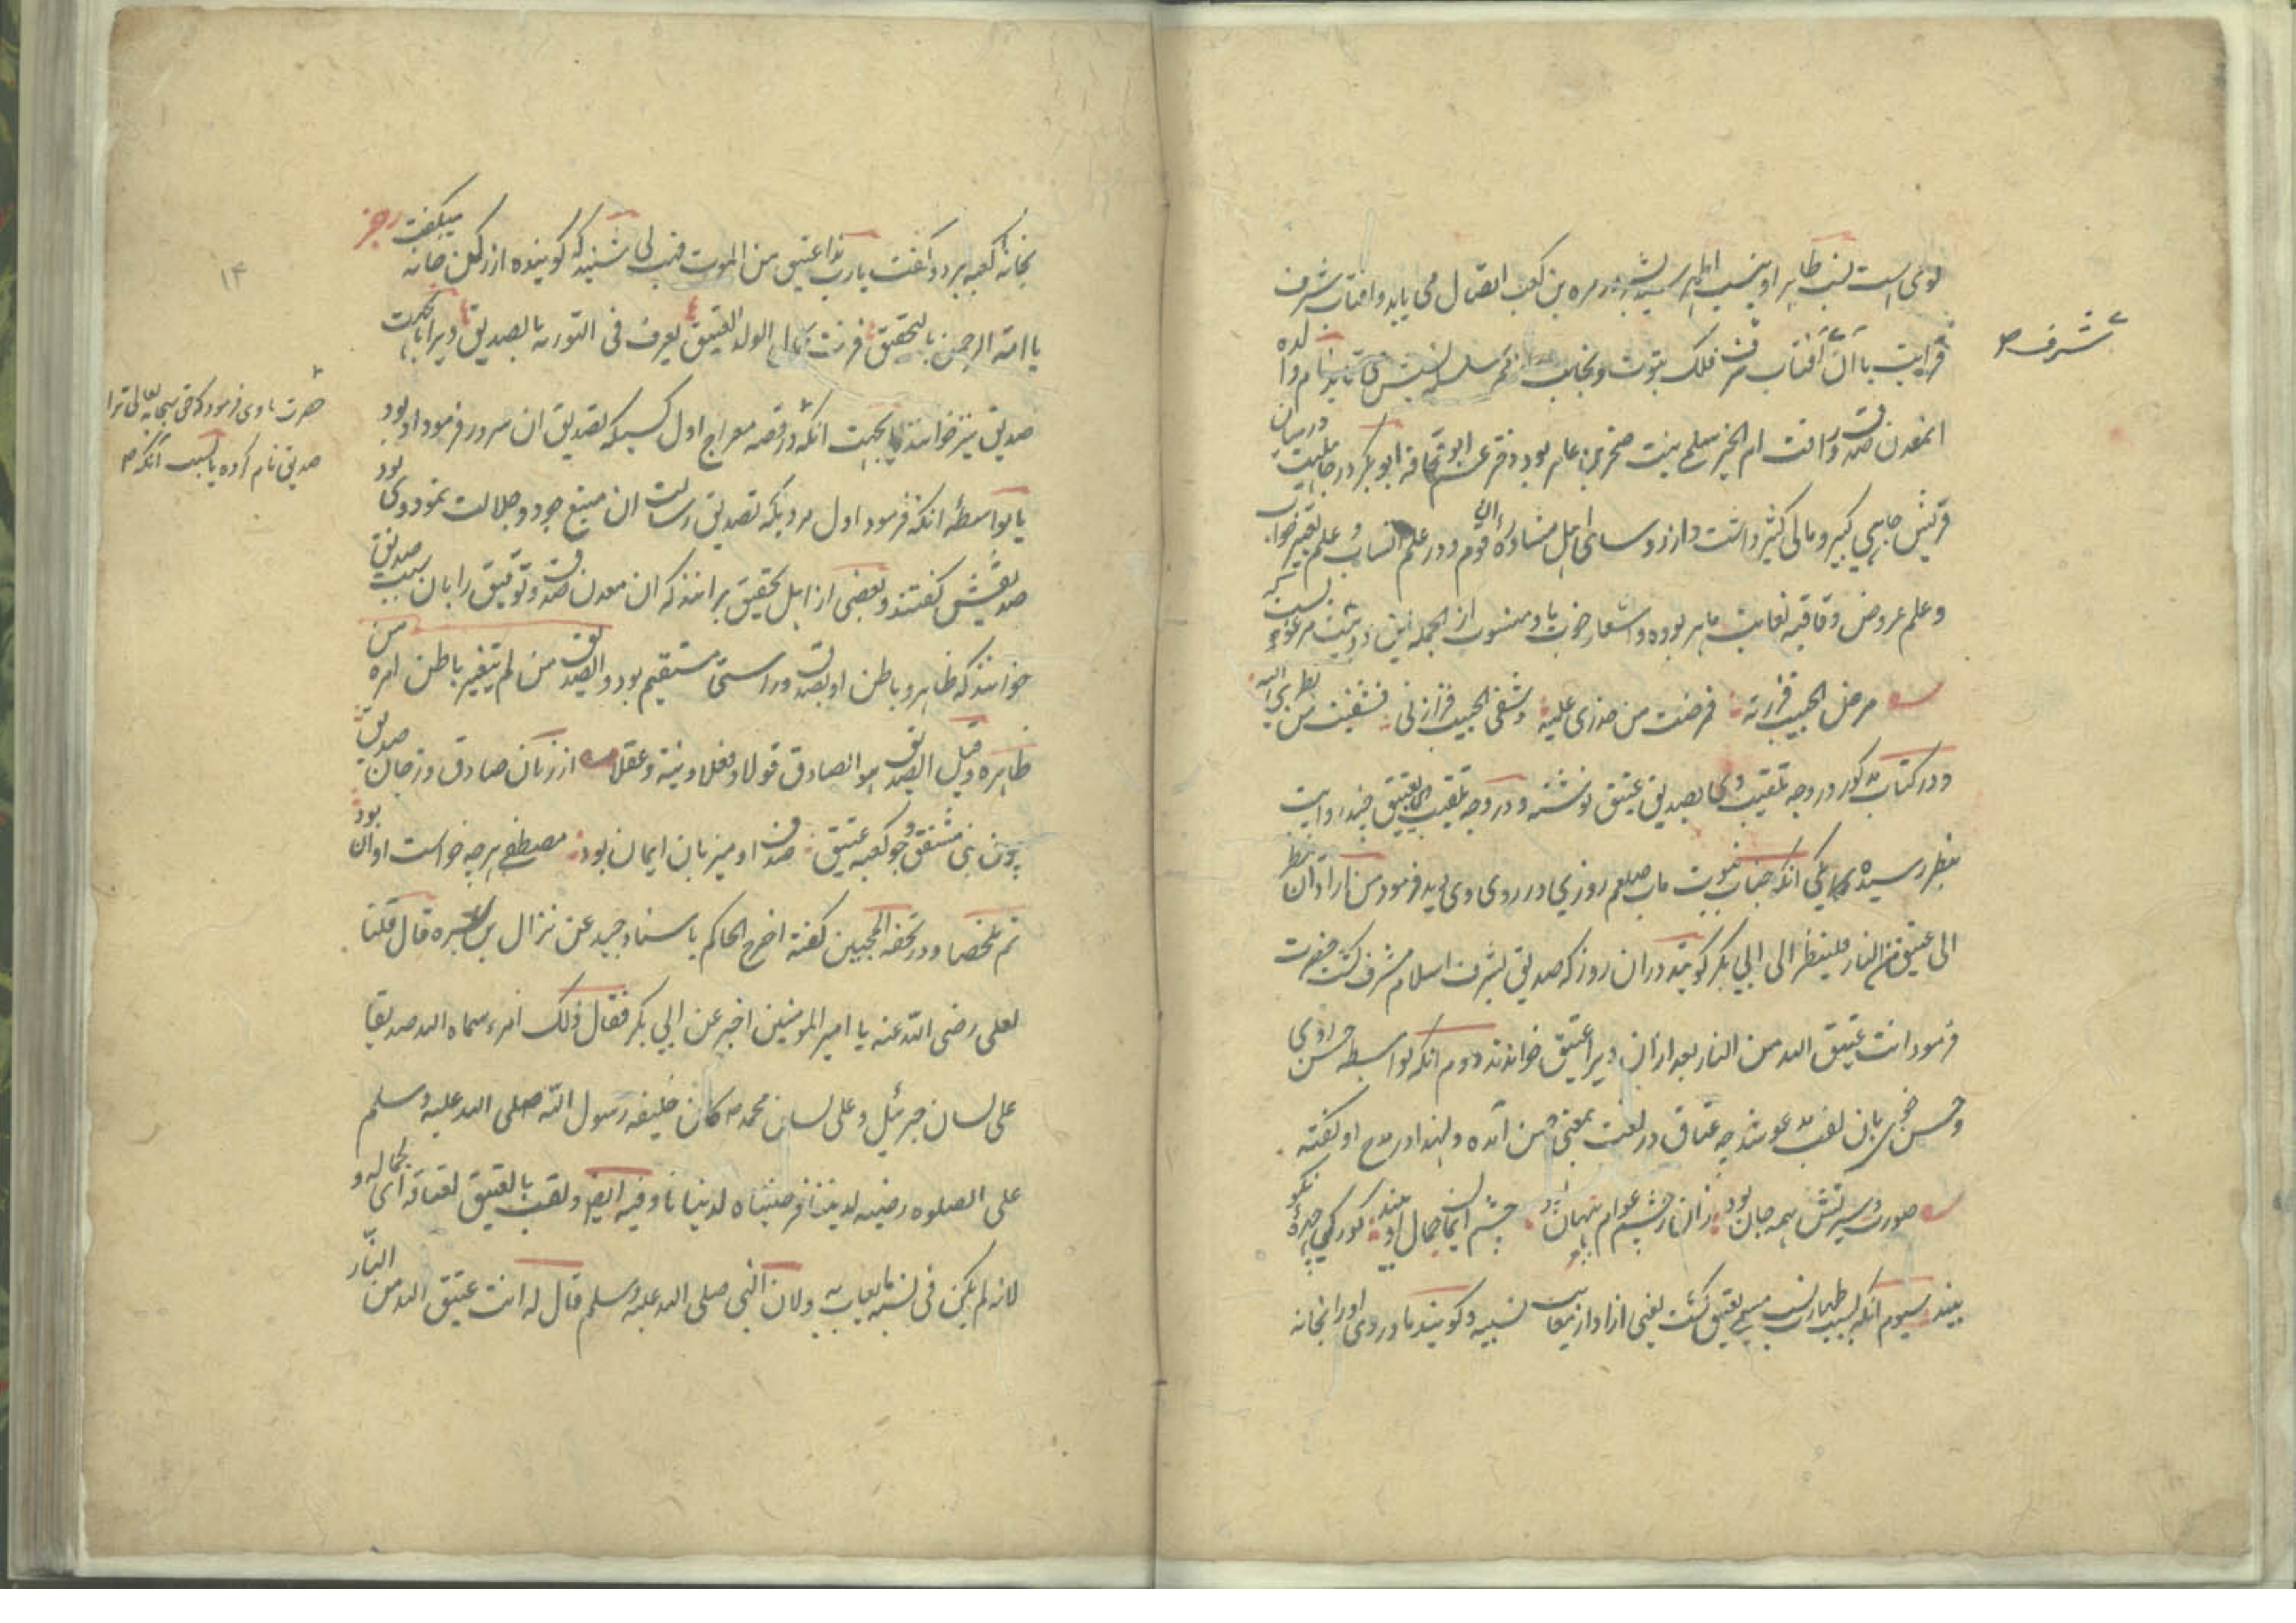 لوی است نسب طاهر او بنسب اطهر سید البشر در مره بن کعب اتصال می یابد و افتاب شرف
شرف
قرابت با آن آفتاب شرف فلک نبوت و نجابت نام والده
انمعدن صدق و رافت ام الخیر سلمی بنت صخر بن عامر بود دختر عم ابو قحافة ابو بکر در جاهلیت درمیان
قریش جاهی کبیر و مالی کثیر داشت و از روسای اهل مشاوره آن قوم و در علم انساب و علم تعبیر خواب
و علم عروض و قافیه بغایت ماهر بوده و اشعار خوب باو منسوب از الجمله این دو بیت مرغوب
مرض الحبیب فزرته فمرضت من حذری علیه وشفی الحبیب فزارنی فشفیت من نظری الیه
و در کتاب مذکور در وجه تلقیب وی بصدیق و عتیق نوشته و در وجه تلقیب وی بعتیق چند روایت
بنظر رسیده یکی انکه جناب نبوت ماب صلعم روزی در روی وی دید فرمود من اراد ان ینظر
الی عتیق من النار فلینظر الی ابی بکر کویند در ان روز که صدیق بشرف اسلام مشرف کشت حضرت
فرمود انت عتیق الله من النار بعد ازان ویرا عتیق خواندند دوم انکه بواسطه حسن روی
و حسن خوی بان لقب مدعو شد چه عتاق در لغت بمعنی حسن آمده و لهذا در مدح او کفته
صورت و سیرتش همه جان بود زان ز چشم عوام پنهان بود چشم ایمان جمال او بیند کور کی چهرهٔ نکو
بیند سیوم انکه بسبب طهارت نسب مسمی بعتیق کشت یعنی ازاد از معایب نسبیه و کویند مادر وی اورا بخانه
بخانه کعبه برد و گفت یارب هذا عتیق من الموت فهب لی شنید که کوینده از رکن خانه میکفت رجز
یا امة الرحمن بالتحقیق فزت بهذا الولد العتیق یعرف فی التوریة بالصدیق ویرا بانجهت
حضرت باوی فرمود که حق سبحانه تعالی ترا
صدیق نام کرده یا بسبب آنکه
صدیق نیز خوانند یا بجهت انکه در قصه معراج اول کسیکه تصدیق ان سرور فرمود او بود
یا بواسطهٔ انکه فرمود اول مردیکه تصدیق رسالت ان منبع جود و جلالت نمود وی بود
صدیقش کفتند و بعضی از اهل تحقیق برانند که ان معدن صدق و توفیق را بان سبب صدیق
خوانند که ظاهر و باطن او بصدق و راستی مستقیم بود و الصدیق من لم یتغیر باطن امره من
ظاهره و قیل الصدیق هو الصادق قولا و فعلا و نیة و عقلا از زبان صادق و ز جان صدیق
چون نبی مشفق و چو کعبه عتیق صدق او میزبان ایمان بود مصطفی هر چه خواست او ان بود
تم ملخصا و در تحفه المحبین کفته اخرج الحاکم باسناد جید عن نزال بن سبره قال قلنا
لعلی رضی الله عنه یا امیر المومنین اخبر عن ابی بکر فقال ذلک امرء سماه الله صدیقا
علی لسان جبرئیل و علی لسان محمد کان خلیفه رسول الله صلی الله علیه وسلم
علی الصلوه رضیه لدیننا فرضیناه لدنیانا و فیه ایضا و لقب بالعتیق لعتاقه ای لجماله و
لانه لم یکن فی نسبه ما یعاب به و لان النبی صلی الله علیه وسلم قال له انت عتیق الله من النار